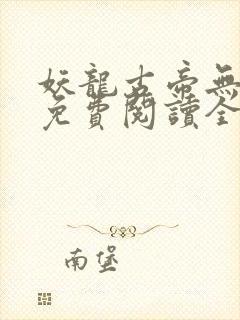 妖龍古帝無
免費閱讀全
南堡